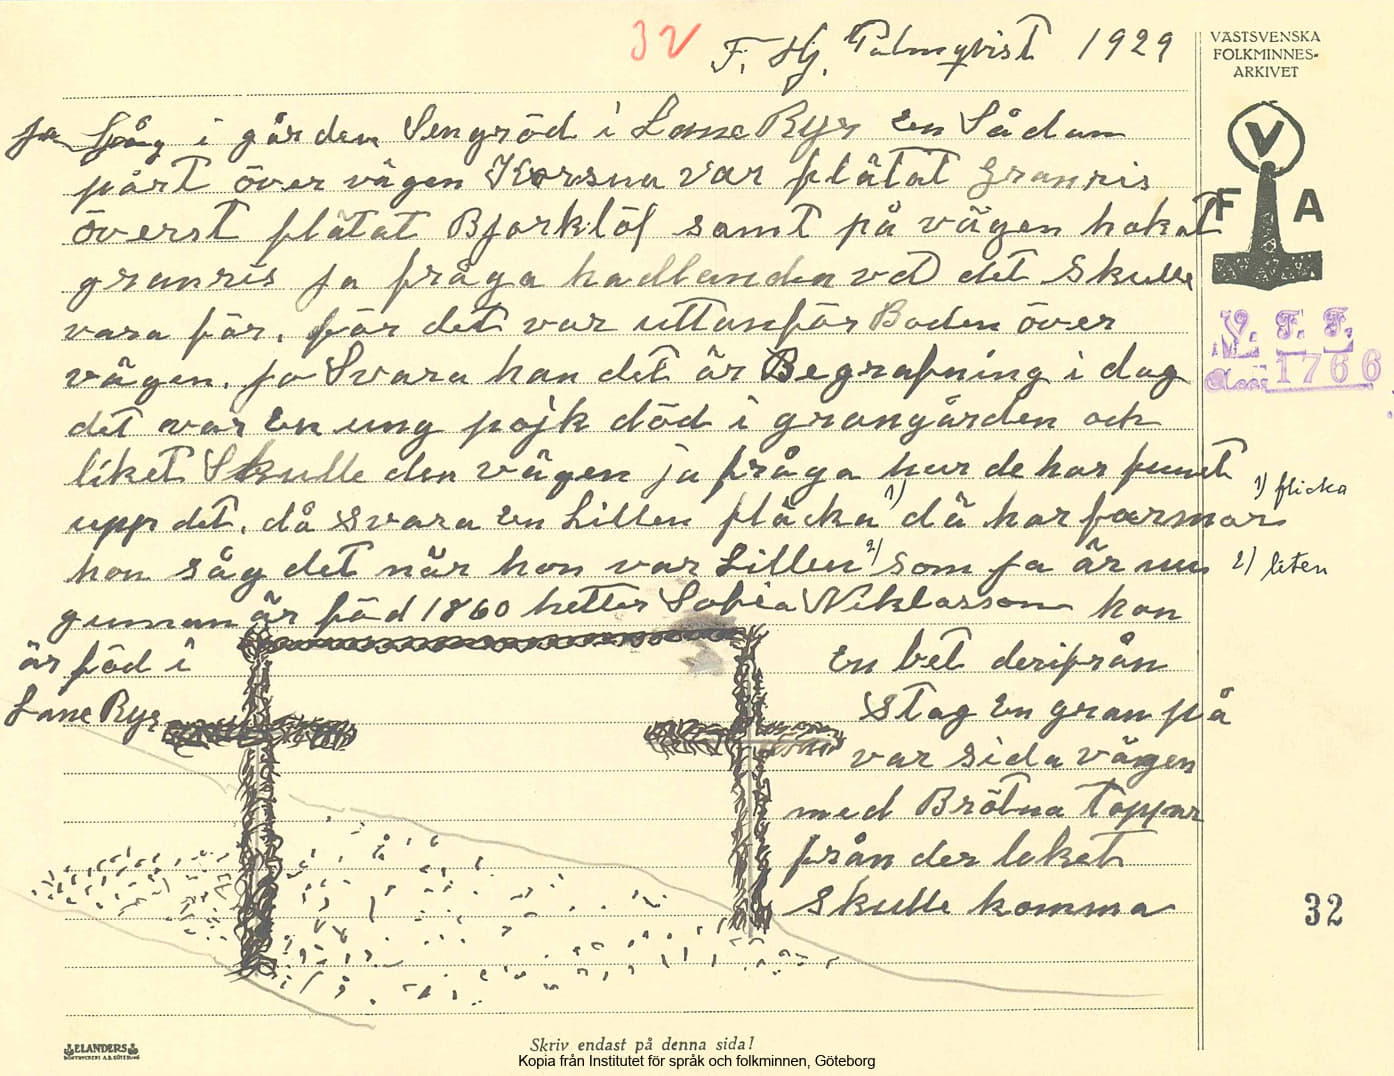 32 F. Hj. Palmqvist 1929
VÄSTSVENSKA
FOLKMINNES-
ARKIVET
V
F A
V. F. F.
1766
ja såg i gården Sengröd i Lane Ryr En Sådan
pårt över vägen Korsna var flätat Granris
överst flätat Björklöf samt på vägen hakat
granris ja fråga hadlanden vad det Skulle
vara för, för det var uttanför Boden över
vägen. jo Svara han det är Begrafning i dag
det var En ung pojk död i grangården och
liket Skulle den vägen ja fråga hur de har funet
upp det. då svara En Lillen fläcka 1) dä har farmor
hon såg det når hon var Lillen 2) som ja är nu
1) flicka
2) liten
gumman är föd 1860 hetter Sofia Niklasson hon
är föd i
Lane Ryr
En bet derifrån
Stog En gran på
var sida vägen
med Brötna toppar
från der liket
Skulle komma
32
ELANDERS
BOKTRYCKERI A.B. GÖTEBORG
Skriv endast på denna sida!
Kopia från Institutet för språk och folkminnen, Göteborg